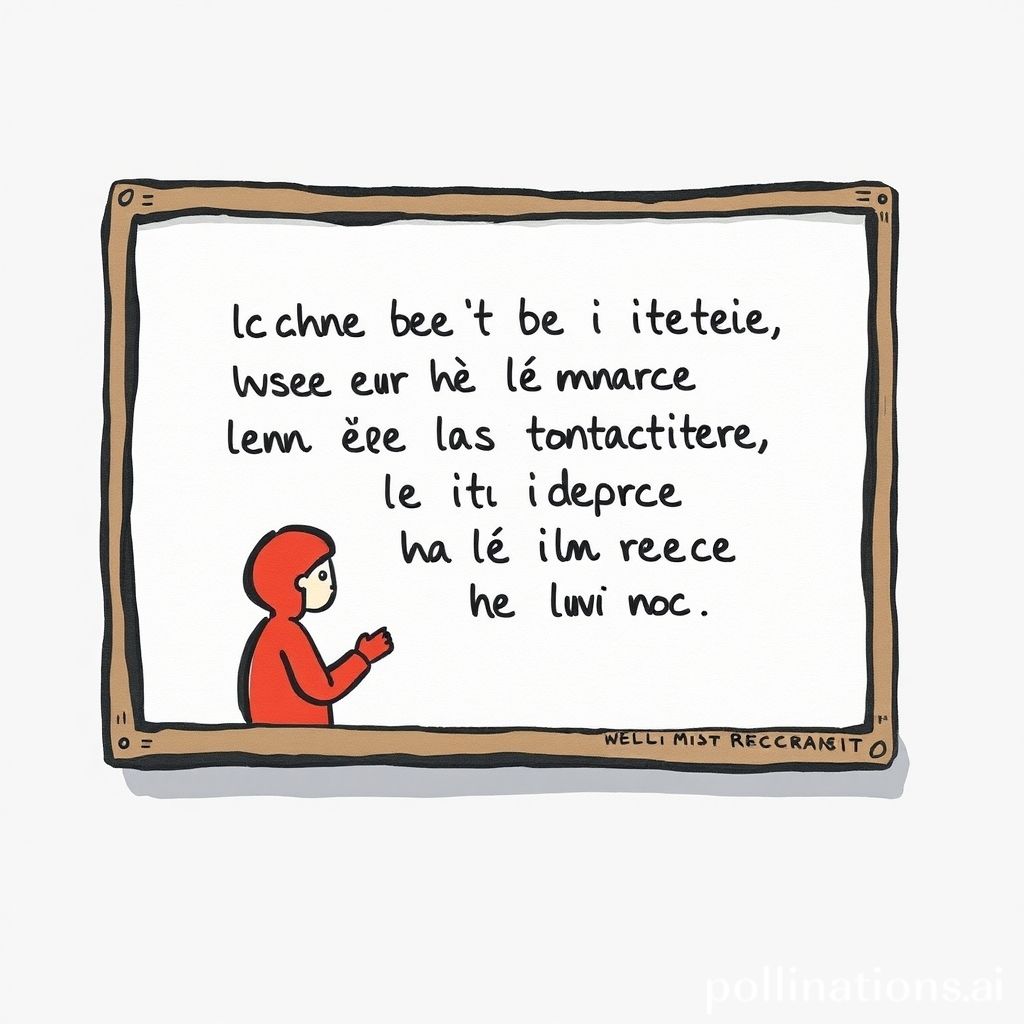 lc chne bee 't be i iteteie,
wsee eur hè lé mnarce
lenn ëee las tontactitere,
le iti ideprce
ha lé ilm reece
he luvi noc.
WELLI MIST RECCRANSIT
pollinations.ai